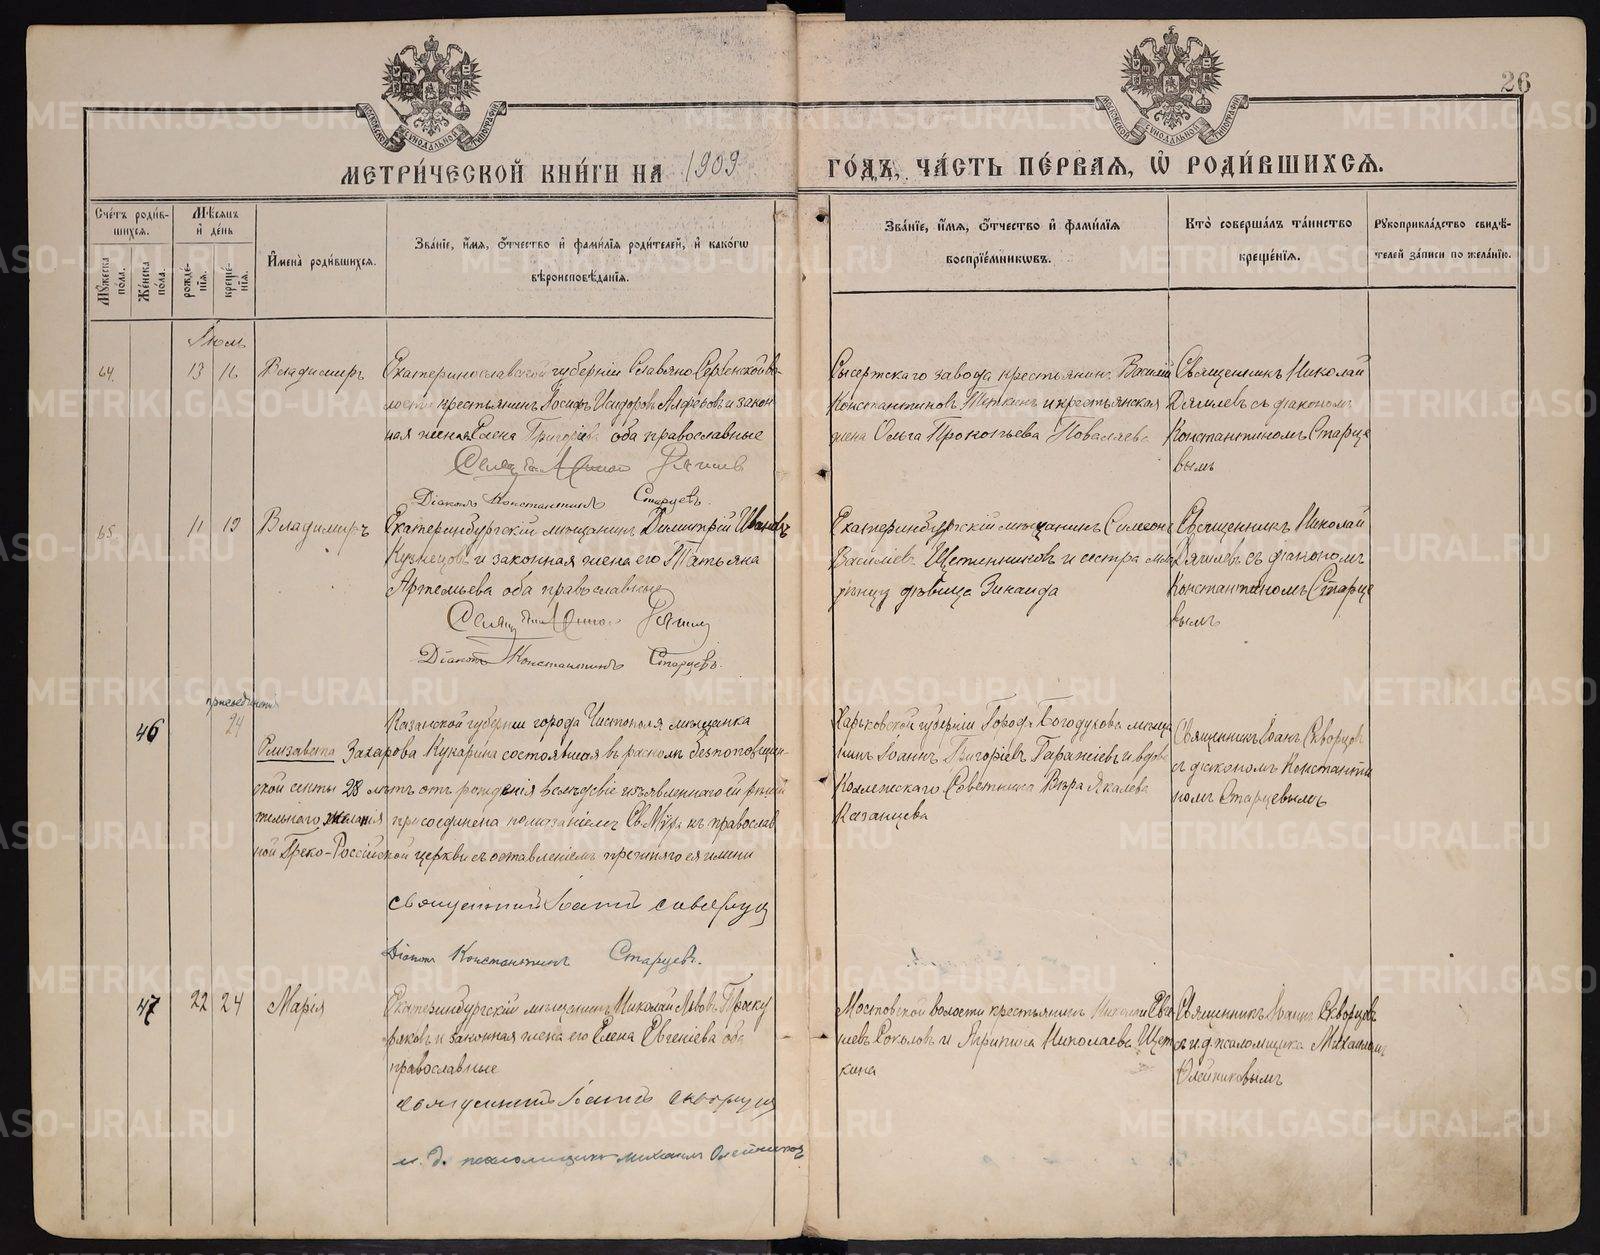 26
МЕТРИ́ЧЕСКОЙ КНИ́ГИ НА 1909 ГО́ДЪ, ЧА́СТЬ ПЕ́РВАЯ, Ѡ҆ РОДИ́ВШИХСѦ.
Сче́тъ роди́в-
шихся.
Мѣ́сяцъ
и҆ де́нь
Мꙋ́жеска
по́ла.
Же́нска
по́ла.
рожде́-
нїѧ.
креще́-
нїѧ.
И҆мена̀ роди́вшихсѧ.
Зва́нїе, и҆́мѧ, ѻ҆́тчество и҆ фами́лїѧ роди́телей, и҆ како́гѡ
вѣроисповѣ́данїѧ.
Зва́нїе, и҆́мѧ, ѻ҆́тчество и҆ фами́лїѧ
воспрїе́мникѡвъ.
Кто̀ соверша́лъ та́инство
креще́нїѧ.
Рꙋкоприкла́дство свидѣ́-
телей за́писи по жела́нїю.
Іюль
64. 13 16 Владимиръ
Екатеринославской губерніи Славяно Сербской во-
лости крестьянинъ Іосифъ Исидоровъ Алферовъ и закон
ная жена Елена Григоріева оба православные
Діаконъ Константинъ Старцевъ.
Сысертскаго завода крестьянинъ Василій
Константиновъ и крестьянская
жена Ольга Прокопьева
Священникъ Николай
Дягилевъ съ діакономъ
Константиномъ Старце
вымъ
65. 11 19 Владимиръ
Екатеринбургскій мѣщанинъ Димитрій Ивановъ
Кузнецовъ и законная жена его Татьяна
Артемьева оба православные
Діаконъ Константинъ Старцевъ.
Екатеринбургскій мѣщанинъ Симеонъ
Василіевъ Щетинниковъ и сестра мла
денцу дѣвица Зинаида
Священникъ Николай
Дягилевъ съ діакономъ
Константиномъ Старце
вымъ
46 24
Казанской губерніи города Чистополя мѣщанка
Елизавета Захарова Кукарина состоявшая въ расколѣ безпоповщин-
ской секты 28 лѣтъ отъ рожденія вслѣдствіе изъявленнаго ей рѣши
тельнаго желанія присоединена помазаніемъ Св. Мѵра къ православ
ной Греко-Россійской церкви съ оставленіемъ прежняго ея имени
священникъ Іоаннъ скворцов
Діаконъ Константинъ Старцевъ.
Харьковской губерніи Города Богодухова мѣща
нинъ Іоаннъ Григоріевъ и вдова
Коллежскаго Совѣтника Вѣра Яковлева
Казанцева
Священникъ Іоаннъ Скворцовъ
съ діакономъ Константи
номъ Старцевымъ
47 22 24 Марія
Екатеринбургскій мѣщанинъ Николай Львовъ Проску
ряковъ и законная жена его Елена Евгеніева оба
православные
священникъ Іоаннъ скворцов
и. д. псаломщика Михаилъ Олейниковъ
Мостовской волости крестьянинъ Николай Евге
ніевъ Соколовъ и Агрипина Николаева Щет
кина
Священникъ Іоаннъ Скворцовъ
съ и.д. псаломщика Михаиломъ
Олейниковымъ
METRIKI.GASO-URAL.RU